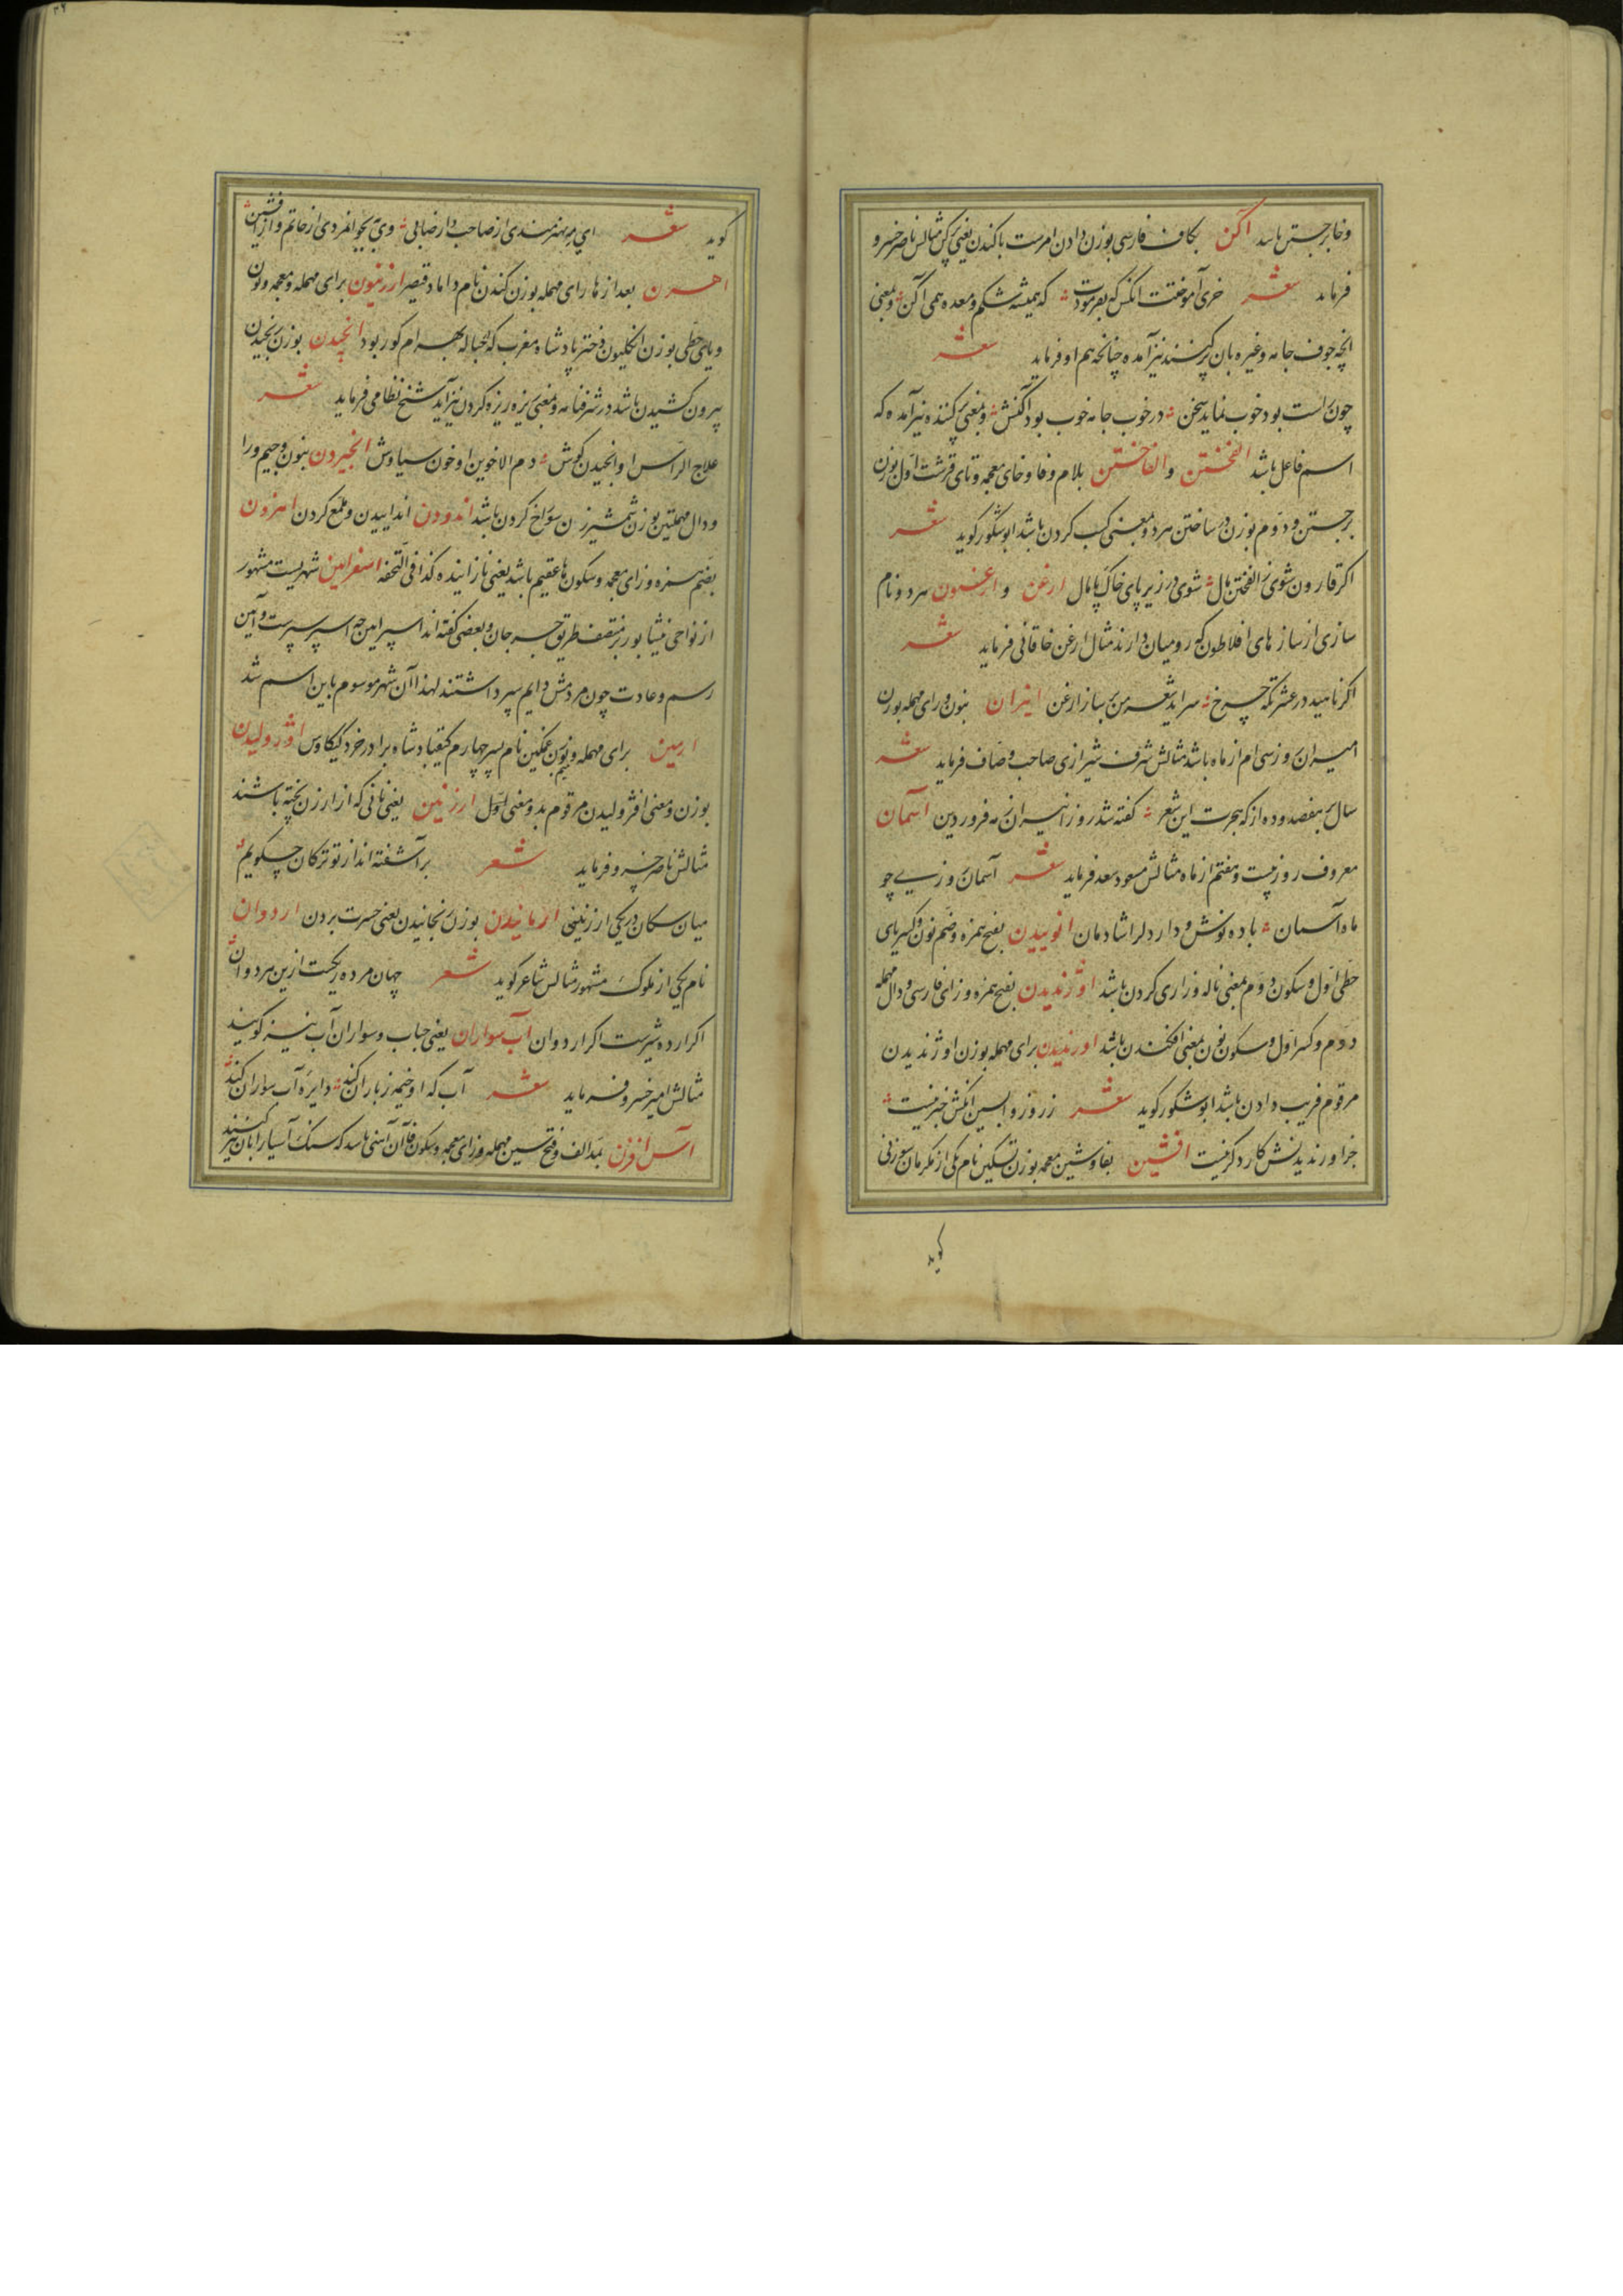 و خا برجستن باشد آگن بکاف فارسی بوزن دادن امرست باکندن یعنی پرکن مثالش ناصر خسرو
فرماید شعر خری آموختت انکس که بفرمودت که همیشه شکم و معده همی آکن و بمعنی
انچه جوف جامه و غیره بان پر کنند نیز آمده چنانچه هم او فرماید شعر
چون راست بود خوب نماید سخن در خوب جامه خوب بود آکنش و بمعنی پر کننده نیز آمده که
اسم فاعل باشد الفختن و الفاختن بلام و فا و خای معجمه و تای قرشت اول بوزن
برجستن و دوم بوزن در ساختن هر دو بمعنی کسب کردن باشد ابو شکور کوید شعر
اکر قارون شوی ز الفختن مال شوی در زیر پای خاک پامال ارغن و ارغنون هر دو نام
سازی از ساز های افلاطون که رومیان دارند مثال ارغن خاقانی فرماید شعر
اکر ناهید در عشرتکه چرخ سراید شعر من بر ساز ارغن انیران بنون و رای مهمله بوزن
امیران روز سی ام از ماه باشد مثالش شرف شیرازی صاحب وصاف فرماید شعر
سال بر هفصد و ده از که هجرت این شعر کفته شد روز انیران ز مه فروردین آسمان
معروف روز بیست و هفتم از ماه مثالش مسعود سعد فرماید شعر آسمان روز ای چو
ماه آسمان باده نوش و دار دلرا شادمان انوییدن بفتح همزه و ضم نون و کسر یای
حطی اول و سکون دوم بمعنی ناله و زاری کردن باشد اوژندیدن بفتح همزه و زای فارسی و دال مهمله
دوم و کسر اول و سکون نون بمعنی افکندن باشد اورندیدن برای مهمله بوزن اوژندیدن
مرقوم فریب دادن باشد ابو شکور کوید شعر ز روز واپسین انکش خبر نیست
جز اورندیدنش کار دکر نیست افشین بفا و شین معجمه بوزن تسکین نام یکی از مکرمان سوزنی
کوید
کوید شعر ای بهنرمندی از صاحب و از صابی وی بجوانمردی از حاتم و از افشین
اهرن بعد از ها رای مهمله بوزن کندن نام داماد قیصر ارزنیون برای مهمله و معجمه و نون
و یای حطی بوزن انکلیون دختر پادشاه مغرب که بحباله بهرام کور بود انجیدن بوزن رنجیدن
بیرون کشیدن باشد در شرفنامه و بمعنی ریزه ریزه کردن نیز آمد شیخ نظامی فرماید شعر
علاج الراس او انجیدن کوش دم الاخوین او خون سیاوش انجیردن بنون و جیم و را
و دال مهملتین بوزن شمشیرزن سوراخ کردن باشد اندودن انداییدن و ملمع کردن اهزون
بضم همزه و زای معجمه و سکون ها عقیم باشد یعنی نازاینده کذا فی التحفه اسفراین شهریست مشهور
از نواحی نیشابور بر منتصف طریق جرجان و بعضی کفته اند اسپراین چه اسپر سپرست و آیین
رسم و عادت چون مردمش دایم سپر داشتند لهذا آن شهر موسوم باین اسم شد
ارمین برای مهمله و میم بوزن غمگین نام پسر چهارم کیقباد شاه برادر خرد کیکاوس اوژولیدن
بوزن و معنی افژولیدن مرقوم بد و معنی اول ارزنین یعنی نانی که از ارزن پخته باشند
مثالش ناصر خسرو فرماید شعر برآشفته اند از تو ترکان چکویم
میان سکان در یکی ارزنینی ارمانیدن بوزن رنجانیدن یعنی حسرت بردن اردوان
نام یکی از ملوک مشهور مثالش شاعر کوید شعر جهان مرده ریکیست ازین هر دوان
اکر ارده شیرست اکر اردوان آب سواران یعنی حباب و سواران آب نیز کویند
مثالش امیر خسرو فرماید شعر آب که او خیمه ز باران کند دایره آب سواران کند
آس افزن بمد الف و فتح سین مهمله و زای معجمه و سکون فا آن آهنی باشد که سنک آسیا را بان تیز کنند